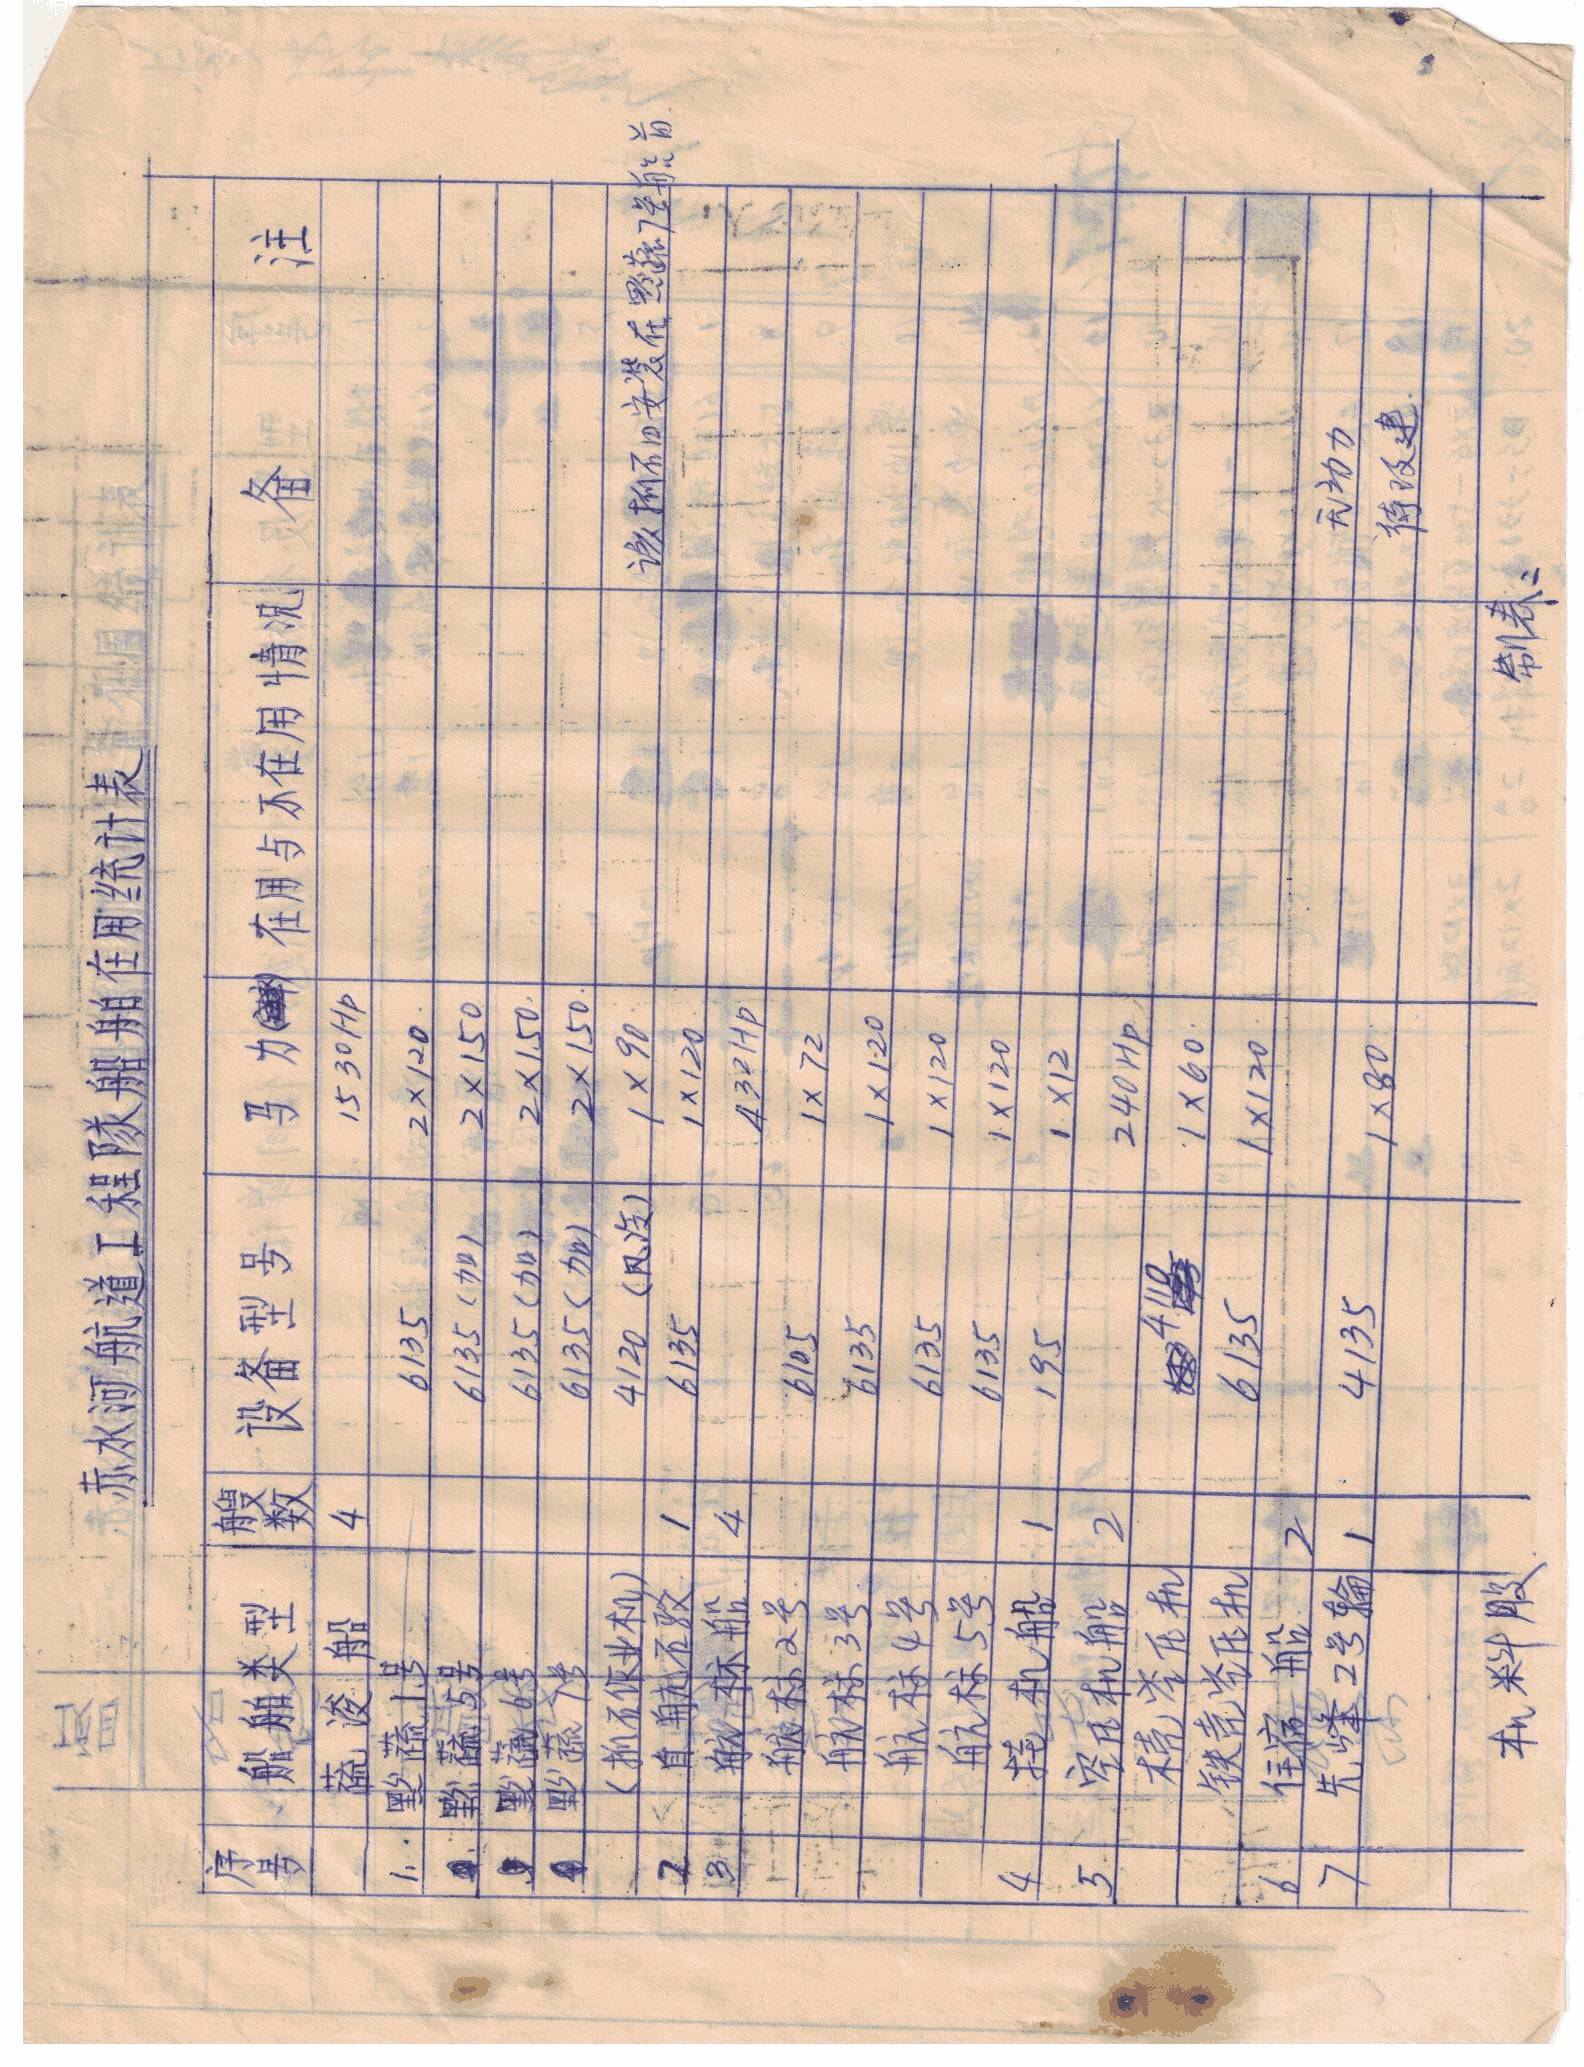 赤水河航道工程隊船舶在用统计表
序号 船舶类型 艘数 设备型号 马力 在用与不在用情况 备注
蔬浚船 4 1530Hp
1. 黔蔬1号 6135 2×120
黔蔬5号 6135(加) 2×150
黔蔬6号 6135(加) 2×150
黔蔬7号 6135(加) 2×150
(抓石作业机) 4120(风冷) 1×90 该抓石口安装在黔蔬7号船首
2 自航石驳 1 6135 1×120
3 航标船 4 432Hp
航标2号 6105 1×72
航标3号 6135 1×120
航标4号 6135 1×120
航标5号 6135 1×120
4 挂机船 1 195 1×12
5 空压机船 2 240Hp
木壳空压机 4110 1×60
铁壳空压机 6135 1×120
6 住宿船 2 无动力
7 先峰2号輪 1 4135 1×80 待改建.
机料股 制表: